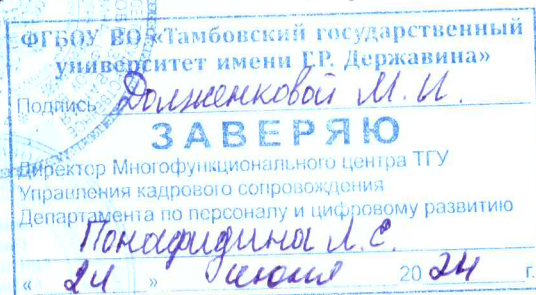 ФГБОУ ВО «Тамбовский государственный
университет имени Г.Р. Державина»
Подпись Долженковой М.И.
ЗАВЕРЯЮ
Директор Многофункционального центра ТГУ
Управления кадрового сопровождения
Департамента по персоналу и цифровому развитию
Понафидина Л.С.
« 24 » июня 20 24 г.